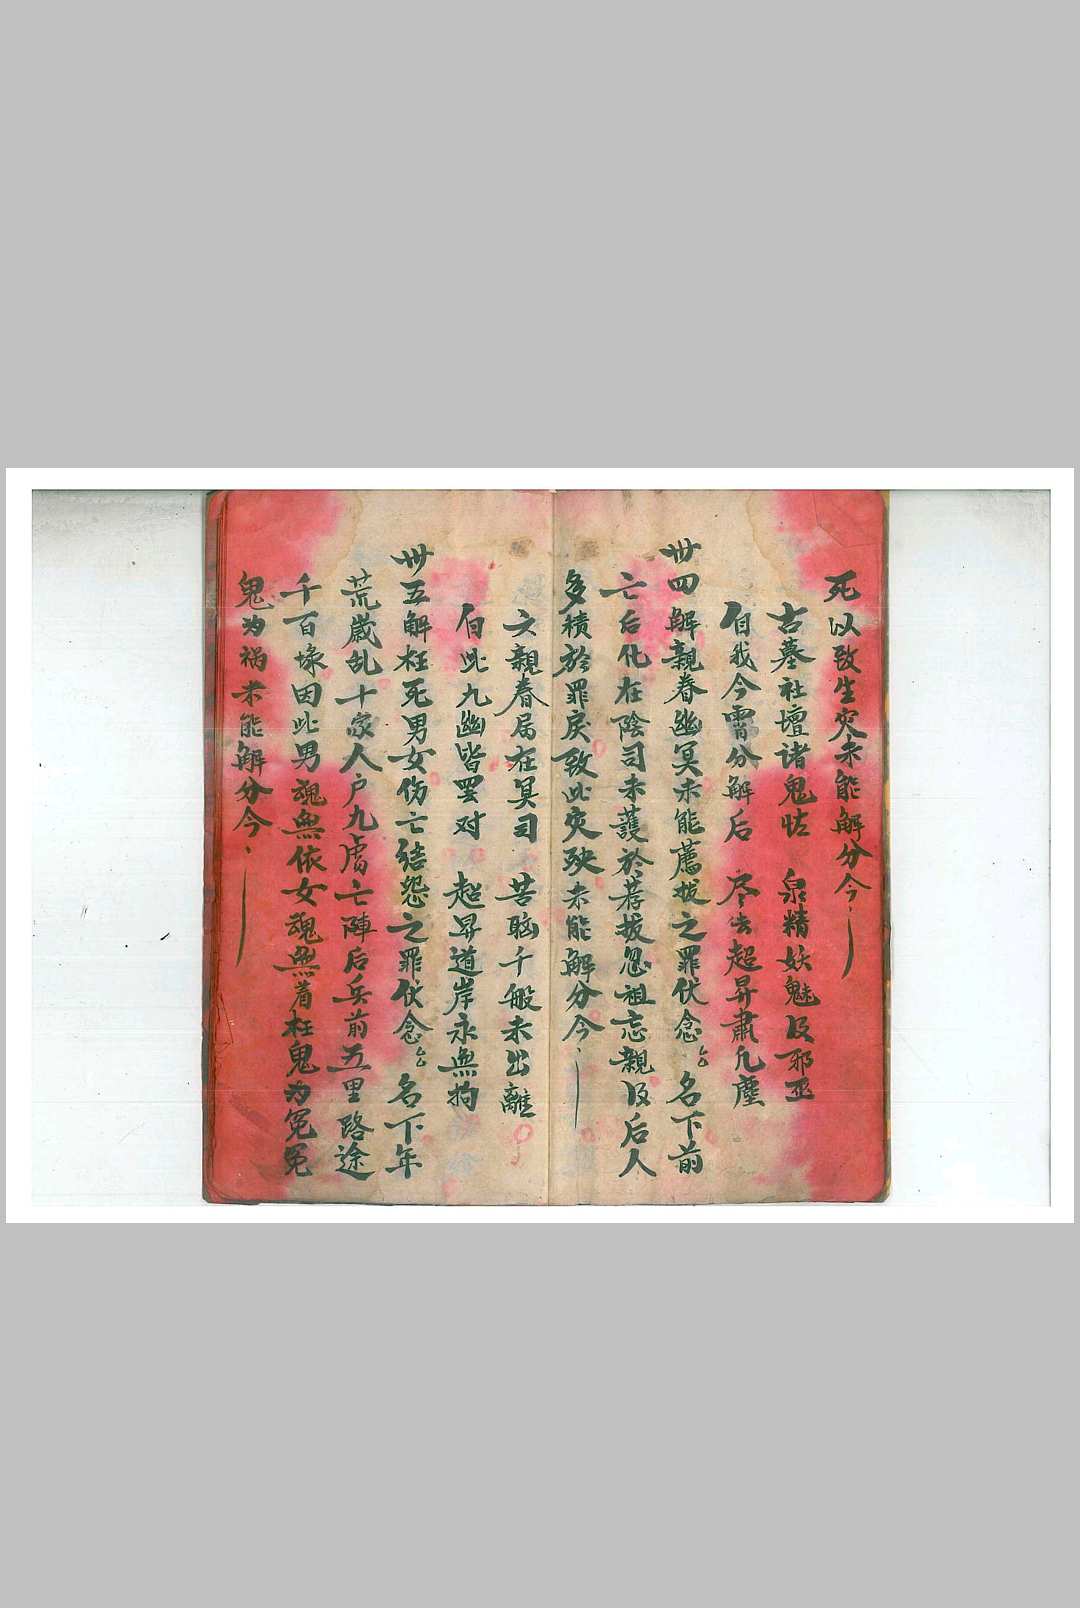 死以致生灾未能解分今
古墓社壇诸鬼怯 泉精妖魅及邪巫
自我今霄分解后 尽去超昇肅凡塵
卅四解親眷幽冥未能薦拔之罪伏念厶厶名下前
亡后化在陰司未護於荐拔忽祖忘親及后人
多積於罪戾致此灾殃未能解分今
六親眷屆在冥司 苦脑千般未出離
自此九幽皆罢对 超昇道岸永無拘
卅五解枉死男女伤亡结怨之罪伏念厶厶名下年
荒歲乱十家人户九虏亡陣后兵前五里路途
千百塚因此男魂無依女魂無着枉鬼为冤冤
鬼为祸未能解分今